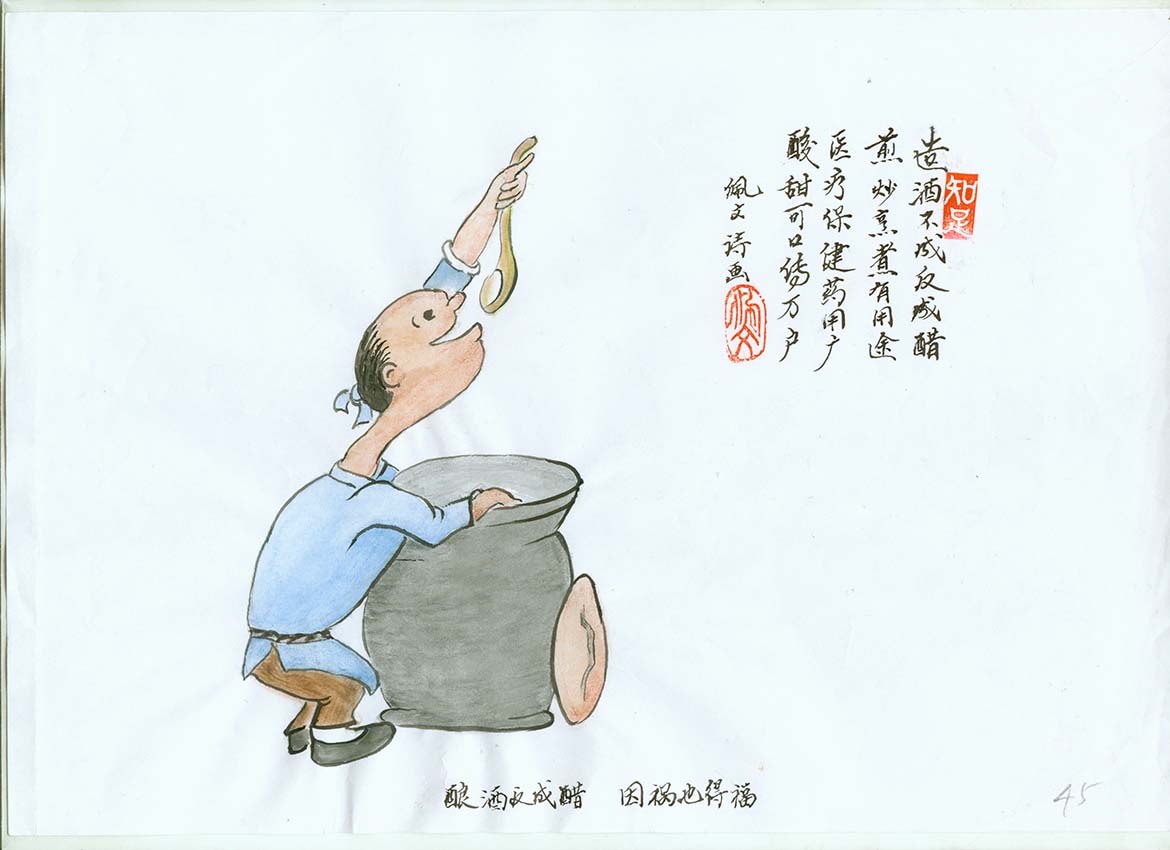 造酒不成反成醋
煎炒烹煮有用途
医疗保健药用广
酸甜可口传万户
佩文诗画
知足
佩文
酿酒反成醋 因祸也得福
45